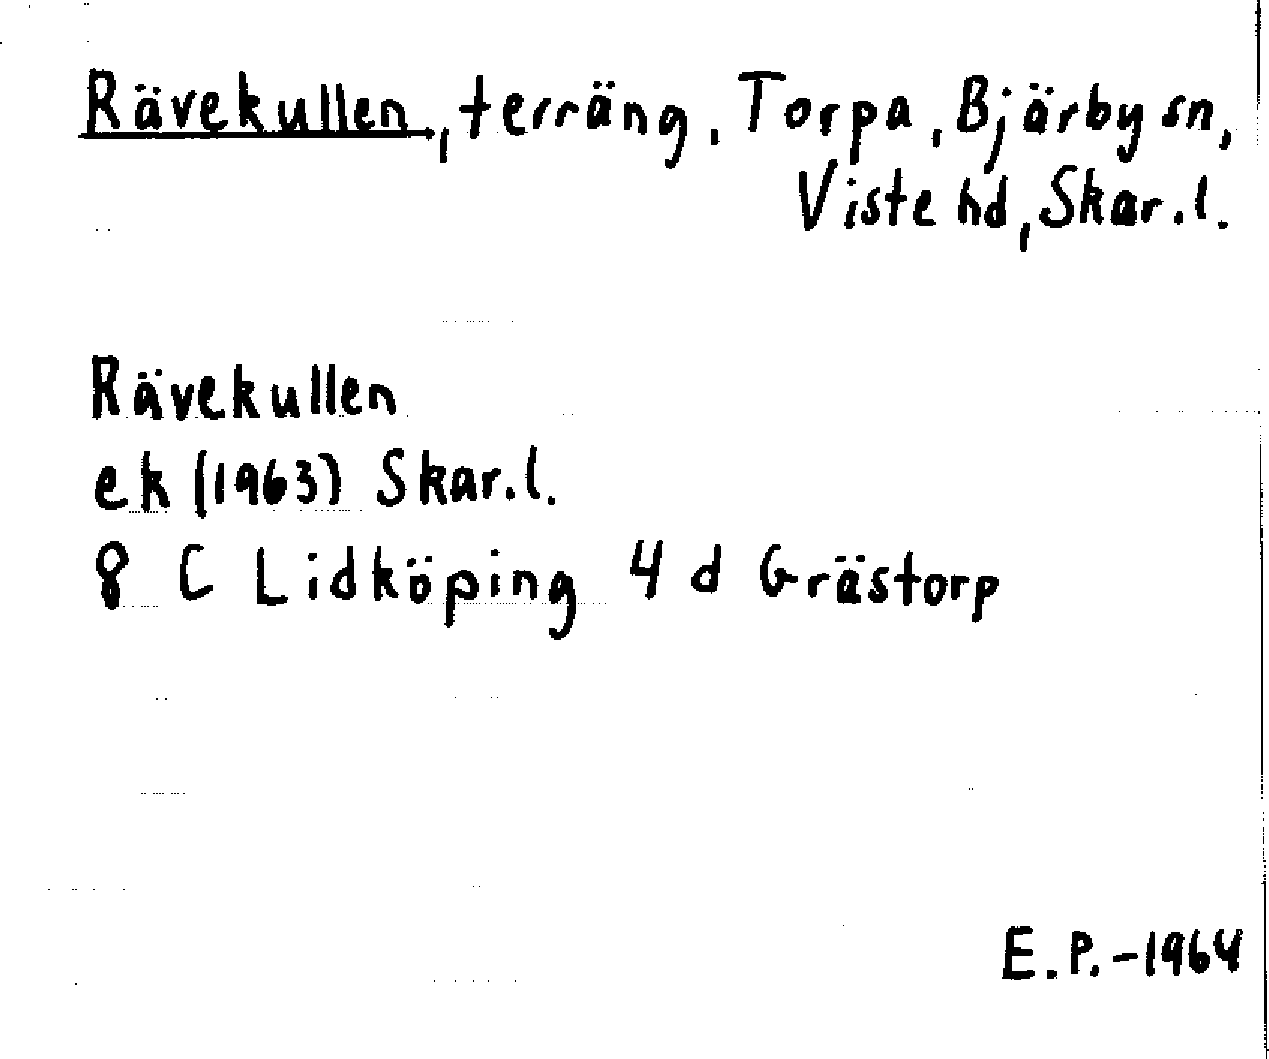 Rävekullen, terräng, Torpa, Bjärby sn,
Viste hd, Skar.l.
Rävekullen
ek (1963) Skar.l.
8 C Lidköping 4 d Grästorp
E.P.-1964